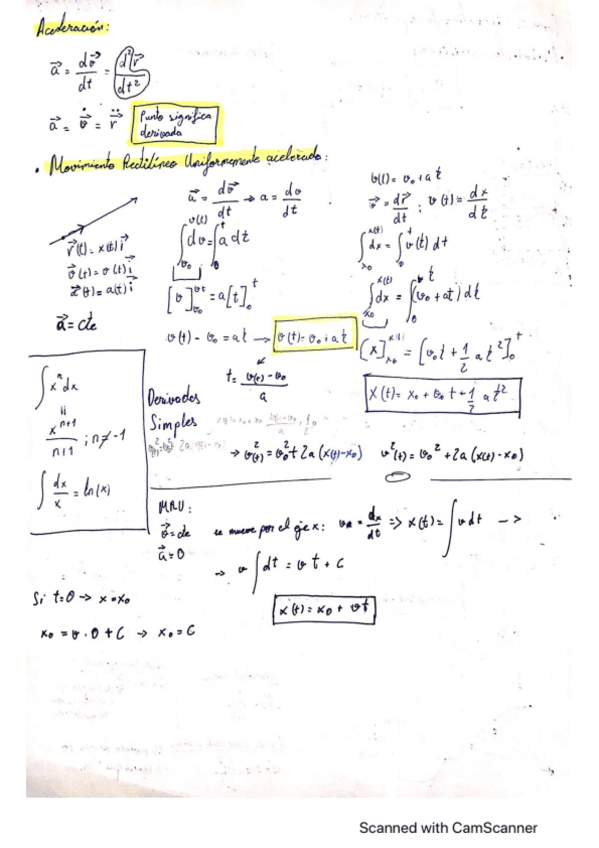 Aceleración:
a⃗ = dv⃗/dt = d²r⃗/dt²
a⃗ = v̇⃗ = r̈⃗
Punto significa
derivada
• Movimiento Rectilíneo Uniformemente acelerado:
r⃗(t) = x(t) i⃗
v⃗(t) = v(t) i⃗
a⃗(t) = a(t) i⃗
a⃗ = cte
a⃗ = dv⃗/dt → a = dv/dt
∫_{v₀}^{v(t)} dv = ∫_0^t a dt
[v]_{v₀}^{v(t)} = a[t]_0^t
v(t) - v₀ = at → v(t) = v₀ + at
t = (v(t) - v₀)/a
v(t) = v₀ + at
v⃗ = dr⃗/dt ; v(t) = dx/dt
∫_{x₀}^{x(t)} dx = ∫_0^t v(t) dt
∫_{x₀}^{x(t)} dx = ∫_0^t (v₀ + at) dt
[x]_{x₀}^{x(t)} = [v₀t + 1/2 at²]_0^t
x(t) = x₀ + v₀t + 1/2 at²
∫xⁿdx
=
x^{n+1}/(n+1) ; n ≠ -1
∫dx/x = ln(x)
Derivadas
Simples
→ v²(t) = v₀² + 2a (x(t) - x₀) v²(t) = v₀² + 2a (x(t) - x₀)
MRU:
v⃗ = cte
a⃗ = 0
se mueve por el eje x: = dx/dt ⇒ x(t) = ∫v dt →
→ v∫dt = vt + C
x(t) = x₀ + vt
Si t=0 → x = x₀
x₀ = v · 0 + C → x₀ = C
Scanned with CamScanner